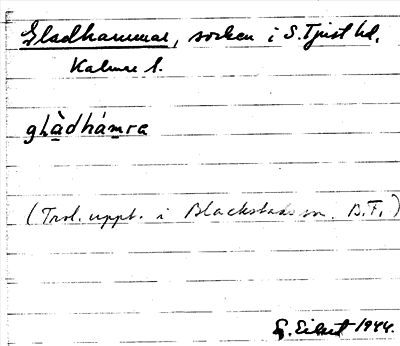 Gladhammar, socken i S. Tjust hd,
Kalmar l.
glàdhámra
(Trol. uppt. i Blackstads sn. B.F.)
G. 1944.